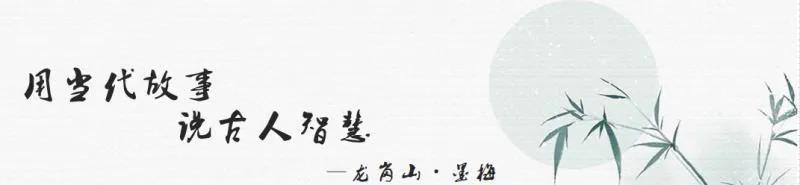 用当代故事
说古人智慧
—龙岗山·墨梅